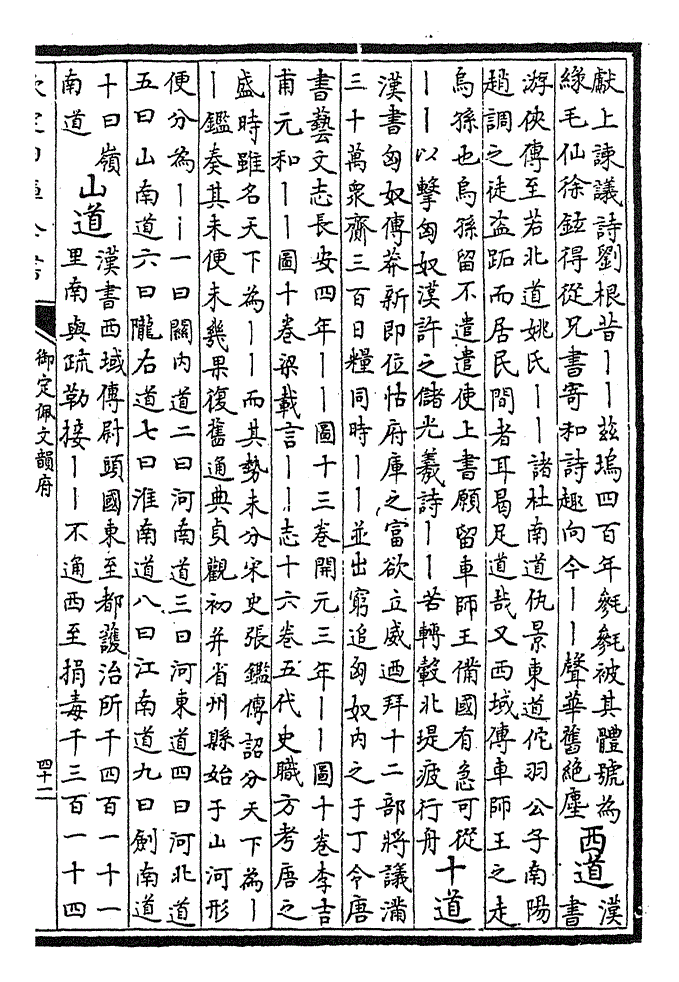 獻上諫議詩劉根昔丨丨兹塢四百年毿毿被其體號為
綠毛仙徐鉉得從兄書寄和詩趣向今丨丨聲華舊絕塵
西道
漢
書
游俠傳至若北道姚氏丨丨諸杜南道仇景東道佗羽公子南陽
趙調之徒盜跖而居民間者耳曷足道哉又西域傳車師王之走
烏孫也烏孫留不遣遣使上書願留車師王備國有急可從
丨丨以擊匈奴漢許之儲光羲詩丨丨苦轉轂北堤疲行舟
十道
漢書匈奴傳莽新即位怙府庫之富欲立威迺拜十二部將議滿
三十萬衆齎三百日糧同時丨丨並出窮追匈奴內之于丁令唐
書藝文志長安四年丨丨圖十三卷開元三年丨丨圖十卷李吉
甫元和丨丨圖十卷梁載言丨丨志十六卷五代史職方考唐之
盛時雖名天下為丨丨而其勢未分宋史張鑑傳詔分天下為丨
丨鑑奏其未便未幾果復舊通典貞觀初并省州縣始于山河形
便分為丨丨一曰關內道二曰河南道三曰河東道四曰河北道
五曰山南道六曰隴右道七曰淮南道八曰江南道九曰劍南道
十曰嶺
南道
山道
漢書西域傳尉頭國東至都護治所千四百一十一
里南與疏勒接丨丨不通西至捐毒千三百一十四
欽定四庫全書
御定佩文韻府
四十二